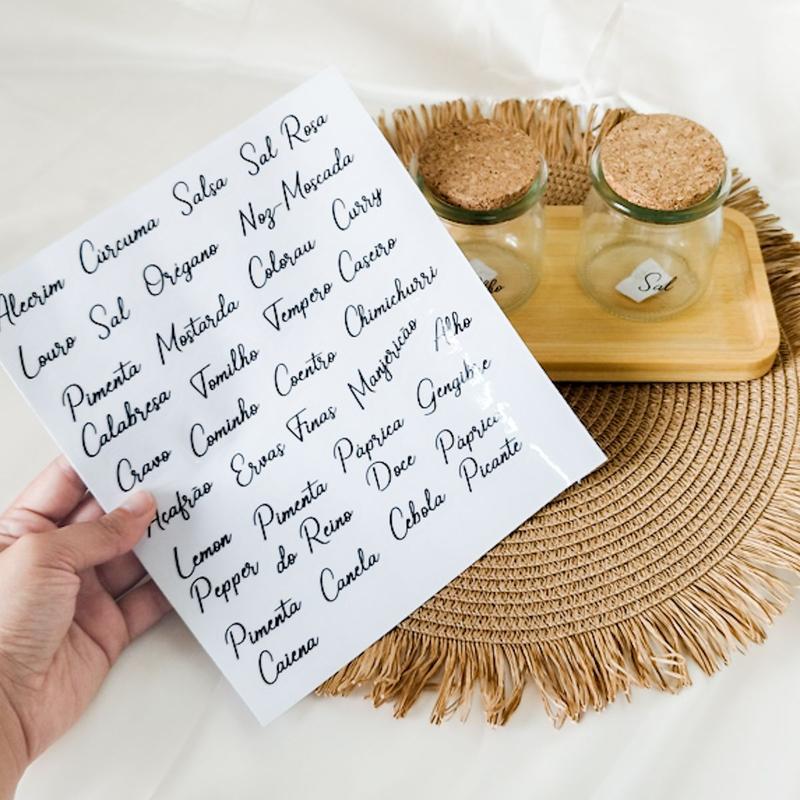 Alecrim Cúrcuma Salsa Sal Rosa
Louro Sal Orégano Noz-Moscada
Pimenta Mostarda Colorau Curry
Calabresa Tomilho Tempero Caseiro
Cravo Cominho Coentro Chimichurri
Açafrão Ervas Finas Manjericão Alho
Lemon Pimenta Páprica Gengibre
Pepper do Reino Doce Páprica
Pimenta Canela Cebola Picante
Caiena
Sal